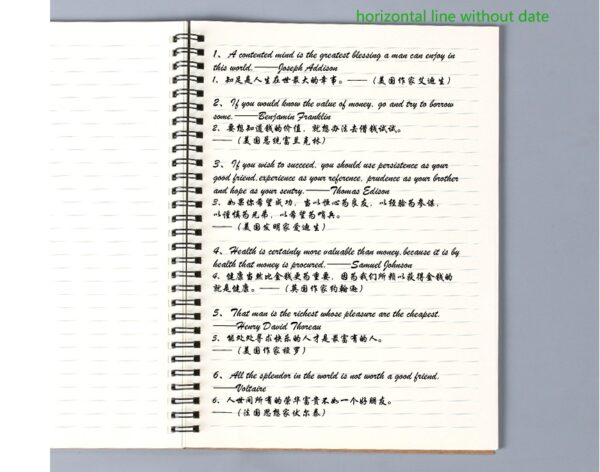 horizontal line without date
1、A contented mind is the greatest blessing a man can enjoy in
this world.——Joseph Addison
1、知足是人生在世最大的幸事。——（美国作家艾迪生）
2、If you would know the value of money, go and try to borrow
some.——Benjamin Franklin
2、要想知道钱的价值，就想办法去借钱试试。
——（美国总统富兰克林）
3、If you wish to succeed, you should use persistence as your
good friend,experience as your reference, prudence as your brother
and hope as your sentry.——Thomas Edison
3、如果你希望成功，当以恒心为良友，以经验为参谋，
以谨慎为兄弟，以希望为哨兵。
——（美国发明家爱迪生）
4、Health is certainly more valuable than money,because it is by
health that money is procured.——Samuel Johnson
4、健康当然比金钱更为重要，因为我们所赖以获得金钱的
就是健康。——（英国作家约翰逊）
5、That man is the richest whose pleasure are the cheapest.
——Henry David Thoreau
5、能处处寻求快乐的人才是最富有的人。
——（美国作家梭罗）
6、All the splendor in the world is not worth a good friend.
——Voltaire
6、人世间所有的荣华富贵不如一个好朋友。
——（法国思想家伏尔泰）